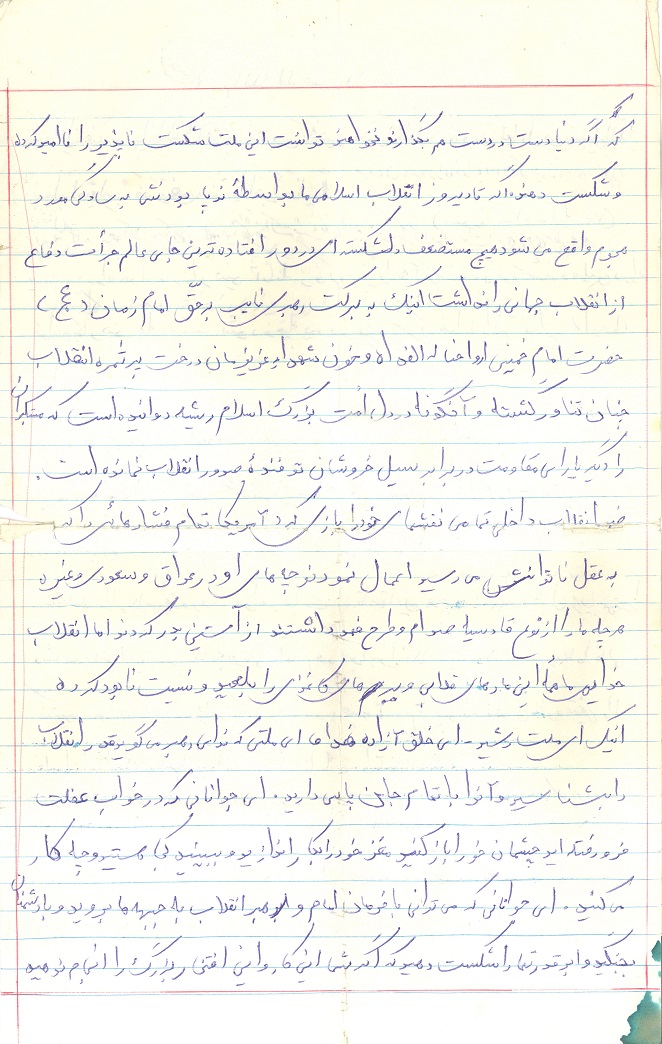 که اگر دنیا دست در دست هم بگذارند نخواهند توانست این ملت شکست ناپذیر را ناامید کرده
و شکست دهند اگر تا دیروز انقلاب اسلامی ما بواسطهٔ نوپا بودنش به سادگی مورد
هجوم واقع می شد و هیچ مستضعف دلشکسته ای در دور افتاده ترین جای عالم جرأت دفاع
از انقلاب جهانی را نداشت اینک به برکت رهبری نایب بر حق امام زمان (عج)
حضرت امام خمینی ارواحنا له الفداه و خون شهدای عزیزمان درخت پر ثمره انقلاب
چنان تناور گشته و آنگونه در دل امت بزرگ اسلام ریشه دوانیده است که مستکبران
را دیگر یارای مقاومت در برابر سیل خروشان توفندهٔ صدور انقلاب نمانده است.
ضد انقلاب داخلی تمامی نقشهای خود را بازی کرد آمریکا تمام فشارهائی را که
به عقل ناتوانش می رسید اعمال نمود نوچه های او در عراق و سعودی و غیره
هر چه مار از نوع قادسیه صدام و طرح فهد داشتند از آستین بدر کردند اما انقلاب
خدایی ما همهٔ این مارهای قلابی و پریم های کاغذی را بلعید و نیست نابود کرده
اینک ای ملت رشید - ای خلق آزاده خدا ای ملتی که ندای رهبر می گوید قدر انقلاب
را بشناسید و آنرا با تمام جان پاس دارید. ای جوانانی که در خواب غفلت
فرو رفته اید چشمان خود را باز کنید مغز خود را بکار اندازید و ببینید کجا هستید و چه کار
می کنید. ای جوانانی که می توانی با فرمان امام و رهبر انقلاب به جبهه ها بروید و با دشمنان
بجنگید و ابرقدرتها را شکست دهید که اگر شما این کار و این افتخار بزرگ را انجام ندهید